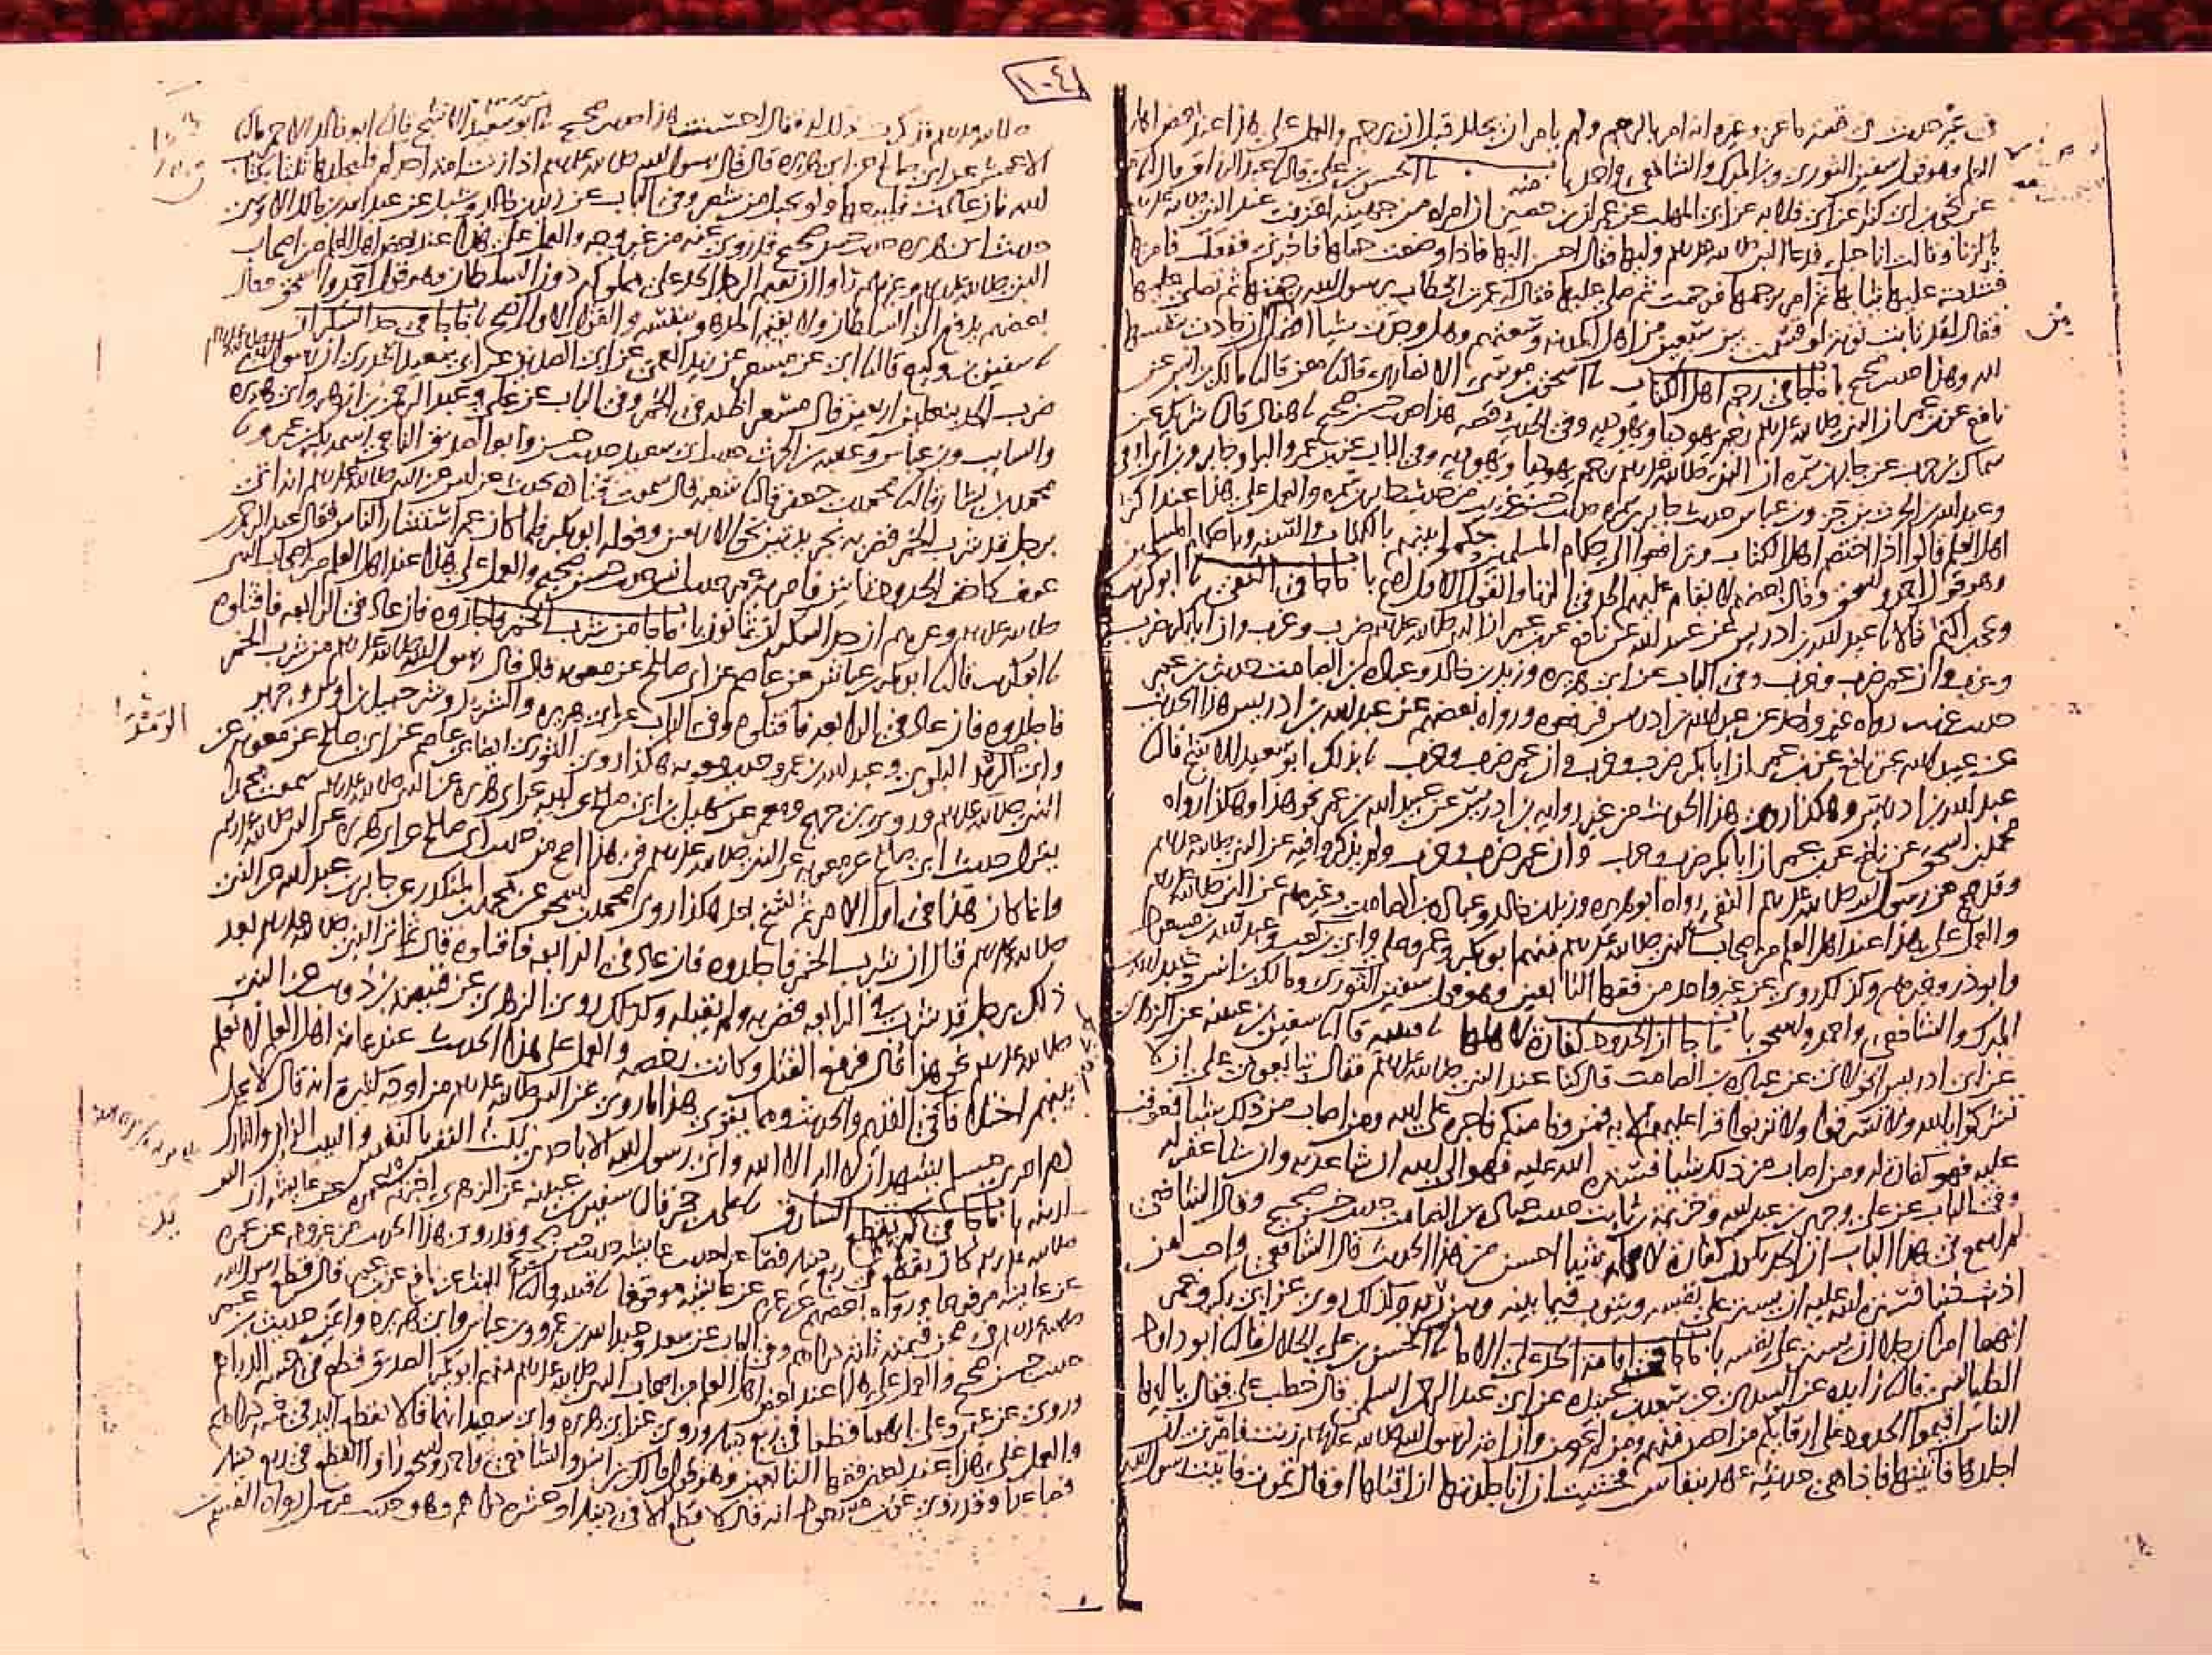 ١٠٤
في غير حديث في قصة ماعز وغيره انه امر بالرجم ولم يامر ان يجلد قبل ان يرجم والعمل على هذا عند بعض اهل
العلم وهو قول سفين الثوري وبن المبرك والشافعي واحمد الحسن بن علي قال عبد الرزاق
عن يحيى بن ابي كثير عن ابي قلابه عن ابي المهلب عن عمران بن حصين ان امراه من جهينه اعترفت عند النبي صلى الله عليه وسلم
بالزنا وقالت انا حبلى فدعا النبي صلى الله عليه وسلم وليها فقال احسن اليها فاذا وضعت حملها فاخبرني ففعل فامر بها
فشدت عليها ثيابها ثم امر برجمها فرجمت ثم صلى عليها فقال له عمر بن الخطاب يرسول الله رجمتها ثم تصلي عليها
فقال لقد تابت توبه لو قسمت بين سبعين من اهل المدينه وسعتهم وهل وجدت شيا افضل من ان جادت بنفسها
لله وهذا حديث صحيح باب ما جا في رجم اهل الكتاب اسحق بن موسى الانصاري قال معن قال مالك بن انس عن
نافع عن بن عمر ان النبي صلى الله عليه وسلم رجم يهوديا ويهوديه وفي الحديث قصه هذا حديث حسن صحيح هناد قال شريك عن
سماك بن حرب عن جابر بن سمره ان النبي صلى الله عليه وسلم رجم يهوديا ويهوديه وفي الباب عن بن عمر والبرا وجابر وبن ابي اوفى
وعبد الله بن الحرث بن جزء وبن عباس حديث جابر بن سمره حديث حسن غريب من حديث جابر بن سمره والعمل على هذا عند اكثر
اهل العلم قالوا اذا اختصم اهل الكتاب وترافعوا الى حكام المسلمين حكموا بينهم بالكتاب والسنه وباحكام المسلمين
وهو قول احمد واسحق وقال بعضهم لا يقام عليهم الحد في الزنا والقول الاول اصح باب ما جا في النفي ابو كريب
عبد الله بن ادريس عن عبيد الله عن نافع عن بن عمر ان النبي صلى الله عليه وسلم ضرب وغرب وان ابا بكر ضرب
وغرب وان عمر ضرب وغرب وفي الباب عن ابي هريره وزيد بن خالد وعباده بن الصامت حديث بن عمر
حديث غريب رواه غير واحد عن عبد الله بن ادريس فرفعوه ورواه بعضهم عن عبد الله بن ادريس هذا الحديث
عن عبيد الله عن نافع عن بن عمر ان ابا بكر ضرب وغرب وان عمر ضرب وغرب بذلك ابو سعيد الاشج قال
عبد الله بن ادريس وهكذا روي هذا الحديث من غير روايه بن ادريس عن عبيد الله بن عمر نحو هذا وهكذا رواه
محمد بن اسحق عن نافع عن بن عمر ان ابا بكر ضرب وغرب وان عمر ضرب وغرب ولم يذكروا فيه عن النبي صلى الله عليه وسلم
وقد صح عن رسول الله صلى الله عليه وسلم النفي رواه ابو هريره وزيد بن خالد وعباده بن الصامت وغيرهم عن النبي صلى الله عليه وسلم
والعمل على هذا عند اهل العلم من اصحاب النبي صلى الله عليه وسلم منهم ابو بكر وعمر وعلي وابي بن كعب وعبد الله بن مسعود
وابو ذر وغيرهم وكذلك روي عن غير واحد من فقها التابعين وهو قول سفين الثوري ومالك بن انس وعبد الله بن
المبرك والشافعي واحمد واسحق باب ما جا ان الحدود كفارة لاهلها قتيبه قال سفين بن عيينه عن الزهري
عن ابي ادريس الخولاني عن عباده بن الصامت قال كنا عند النبي صلى الله عليه وسلم فقال تبايعوني على ان لا
تشركوا بالله ولا تسرقوا ولا تزنوا قرا عليهم الايه فمن وفا منكم فاجره على الله ومن اصاب من ذلك شيا فعوقب
عليه فهو كفارة له ومن اصاب من ذلك شيا فستره الله عليه فهو الى الله ان شا عذبه وان شا غفر له
وفي الباب عن علي وجرير بن عبد الله وخزيمه بن ثابت حديث عباده بن الصامت حديث حسن صحيح وقال الشافعي
لم اسمع في هذا الباب ان الحد يكون كفارة لاهله شيا احسن من هذا الحديث قال الشافعي واحب لمن
اذنب ذنبا فستره الله عليه ان يستر على نفسه ويتوب فيما بينه وبين ربه وكذلك روي عن ابي بكر وعمر
انهما امرا رجلا ان يستر على نفسه باب ما جا في اقامة الحد على الاما الحسن بن علي الخلال قال ابو داود
الطيالسي قال زايده عن السدي عن سعد بن عبيده عن ابي عبد الرحمن السلمي قال خطب علي فقال يا ايها
الناس اقيموا الحدود على ارقايكم من احصن منهم ومن لم يحصن وان امة لرسول الله صلى الله عليه وسلم زنت فامرني ان
اجلدها فاتيتها فاذا هي حديثة عهد بنفاس فخشيت ان انا جلدتها ان اقتلها او قال تموت فاتيت رسول الله
صلى الله عليه وسلم فذكرت ذلك له فقال احسنت هذا حديث صحيح ابو سعيد الاشج قال ابو خالد الاحمر قال
الاعمش عن ابي صالح عن ابي هريره قال قال رسول الله صلى الله عليه وسلم اذا زنت امة احدكم فليجلدها ثلثا بكتاب
الله فان عادت فليبعها ولو بحبل من شعر وفي الباب عن زيد بن خالد وشبل عن عبد الله بن مالك الاوسي
حديث ابي هريره حديث حسن صحيح قد روي عنه من غير وجه والعمل على هذا عند بعض اهل العلم من اصحاب
النبي صلى الله عليه وسلم وغيرهم راوا ان يقيم الرجل الحد على مملوكه دون السلطان وهو قول احمد واسحق وقال
بعضهم يدفع الى السلطان ولا يقيم الحد هو بنفسه والقول الاول اصح باب ما جا في حد السكران
سفين بن وكيع قال ابي عن مسعر عن زيد العمي عن ابي الصديق عن ابي سعيد الخدري ان رسول الله صلى الله عليه وسلم
ضرب الحد بنعلين اربعين قال مسعر اظنه في الخمر وفي الباب عن علي وعبد الرحمن بن ازهر وابي هريره
والسايب وبن عباس وعقبه بن الحرث حديث ابي سعيد حديث حسن وابو الصديق الناجي اسمه بكر بن عمرو
محمد بن بشار قال محمد بن جعفر قال شعبه قال سمعت قتاده يحدث عن انس عن النبي صلى الله عليه وسلم انه اتي
برجل قد شرب الخمر فضربه بجريدتين نحو الاربعين وفعله ابو بكر فلما كان عمر استشار الناس فقال عبد الرحمن بن
عوف كاخف الحدود ثمانين فامر به عمر حديث انس حديث حسن صحيح والعمل على هذا عند اهل العلم من اصحاب النبي
صلى الله عليه وسلم وغيرهم ان حد السكران ثمانون باب ما جا من شرب الخمر فاجلدوه فان عاد في الرابعه فاقتلوه
ابو كريب قال ابو بكر بن عياش عن عاصم عن ابي صالح عن معويه قال قال رسول الله صلى الله عليه وسلم من شرب الخمر
فاجلدوه فان عاد في الرابعه فاقتلوه وفي الباب عن ابي هريره والشريد وشرحبيل بن اوس وجرير
وابي الرمد البلوي وعبد الله بن عمرو حديث معويه هكذا روى الثوري ايضا عن عاصم عن ابي صالح عن معويه عن
النبي صلى الله عليه وسلم وروى بن جريج ومعمر عن سهيل بن ابي صالح عن ابيه عن ابي هريره عن النبي صلى الله عليه وسلم سمعت محمدا
يقول حديث ابي صالح عن معويه عن النبي صلى الله عليه وسلم في هذا اصح من حديث ابي صالح عن ابي هريره عن النبي صلى الله عليه وسلم
وانما كان هذا في اول الامر ثم نسخ بعد هكذا روى محمد بن اسحق عن محمد بن المنكدر عن جابر بن عبد الله عن النبي
صلى الله عليه وسلم قال ان شرب الخمر فاجلدوه فان عاد في الرابعه فاقتلوه قال ثم اتي النبي صلى الله عليه وسلم بعد
ذلك برجل قد شرب في الرابعه فضربه ولم يقتله وكذلك روى الزهري عن قبيصه بن ذويب عن النبي
صلى الله عليه وسلم نحو هذا قال فرفع القتل وكانت رخصه والعمل على هذا الحديث عند عامة اهل العلم لا نعلم
بينهم اختلافا في القديم والحديث ومما يقوي هذا ما روي عن النبي صلى الله عليه وسلم من اوجه كثيرة انه قال لا يحل
دم امرئ مسلم يشهد ان لا اله الا الله واني رسول الله الا باحدى ثلث النفس بالنفس والثيب الزاني والتارك
لدينه باب ما جا في كم يقطع السارق علي بن حجر قال سفين بن عيينه عن الزهري اخبرته عمره عن عايشه ان النبي
صلى الله عليه وسلم كان يقطع في ربع دينر فصاعدا حديث عايشه حديث حسن صحيح وقد روي هذا الحديث من غير وجه عن عمره
عن عايشه مرفوعا ورواه بعضهم عن عمره عن عايشه موقوفا قتيبه قال الليث عن نافع عن بن عمر قال قطع رسول الله
صلى الله عليه وسلم في مجن قيمته ثلثه دراهم وفي الباب عن سعد وعبد الله بن عمرو وبن عباس وابي هريره وايمن حديث بن عمر
حديث حسن صحيح والعمل على هذا عند بعض اهل العلم من اصحاب النبي صلى الله عليه وسلم منهم ابو بكر الصديق قطع في خمسة دراهم
وروي عن عثمن وعلي انهما قطعا في ربع دينار وروي عن ابي هريره وابي سعيد انهما قالا تقطع اليد في خمسة دراهم
والعمل على هذا عند بعض فقها التابعين وهو قول مالك بن انس والشافعي واحمد واسحق راوا القطع في ربع دينار
فصاعدا وقد روي عن بن مسعود انه قال لا قطع الا في دينار او عشرة دراهم وهو حديث مرسل رواه القسم بن